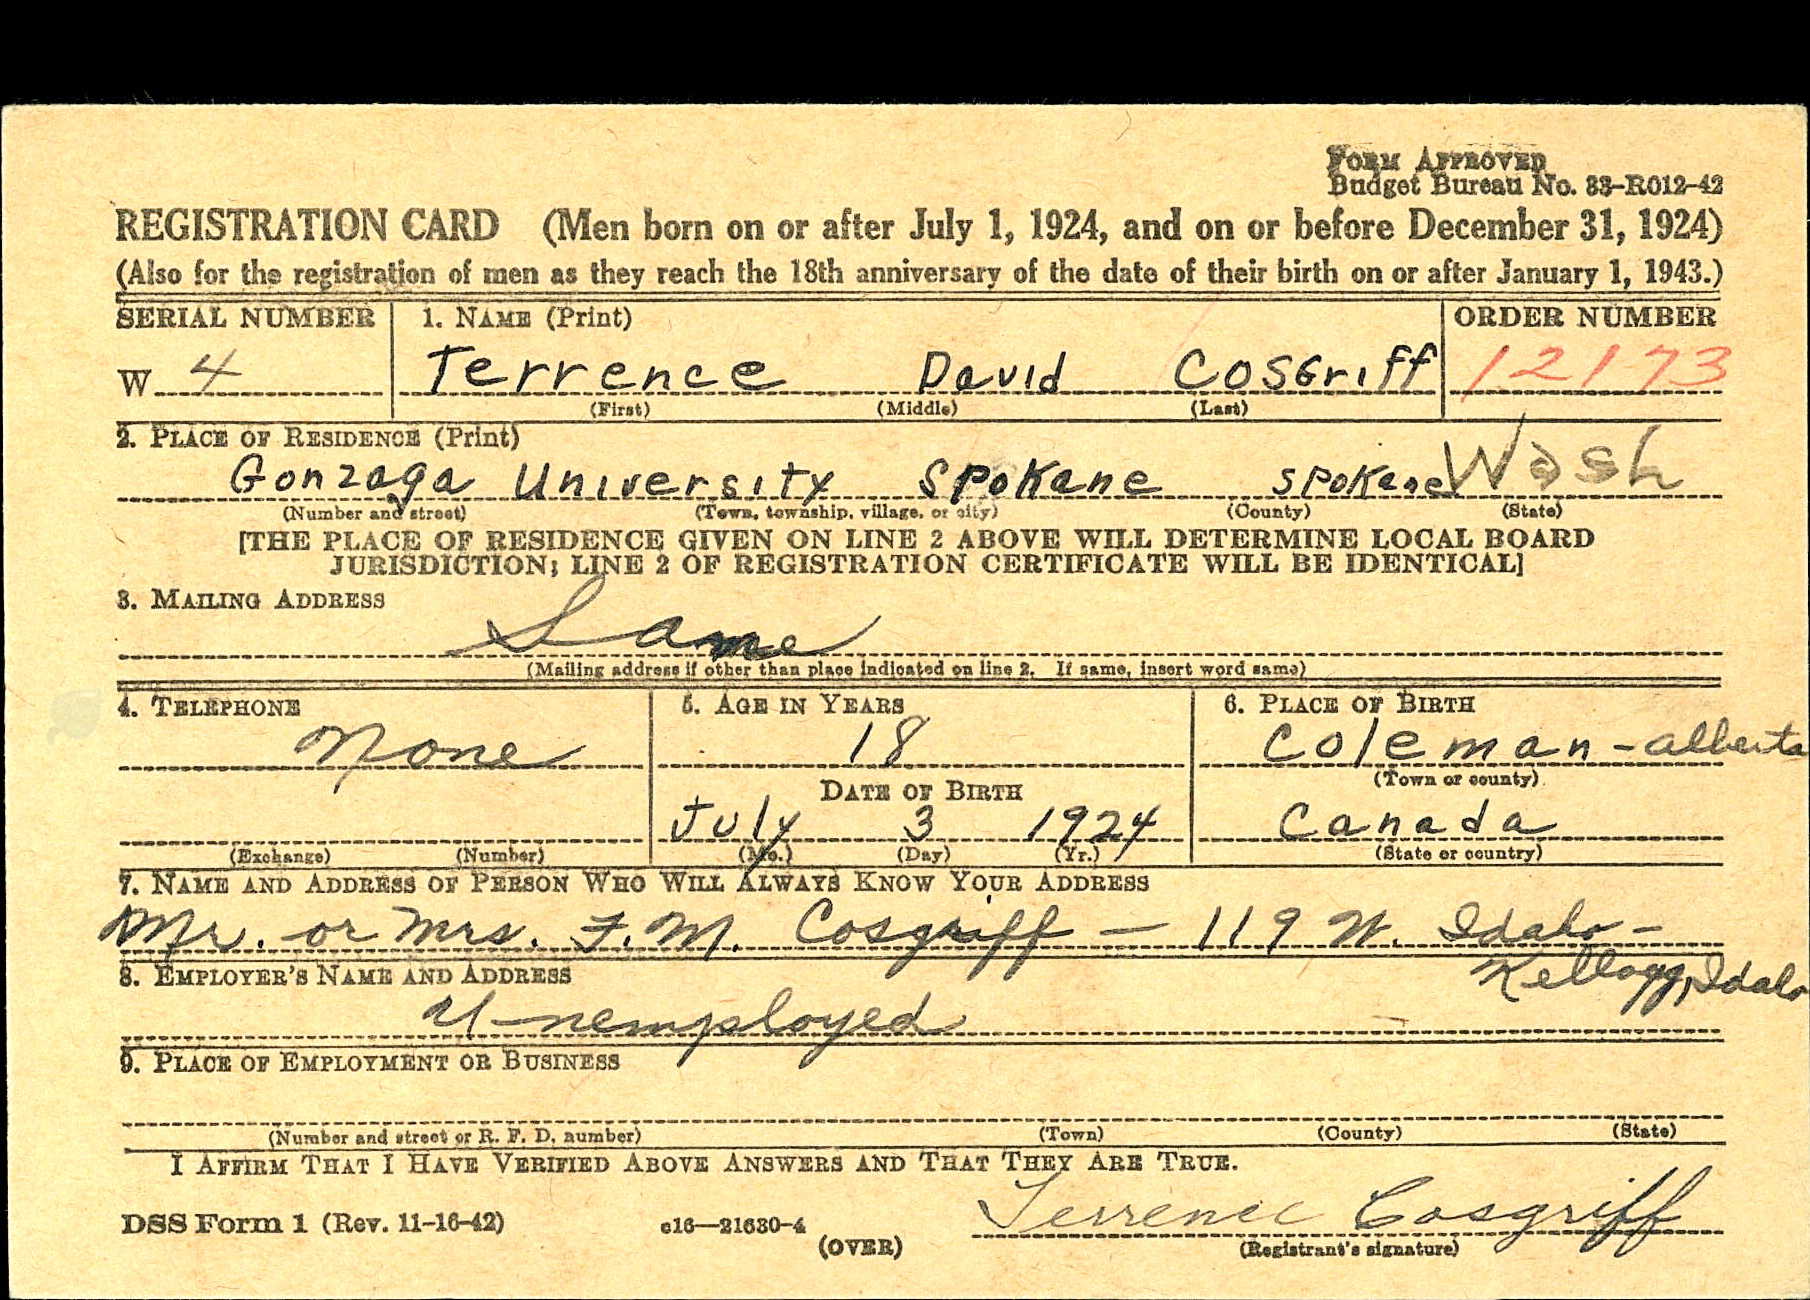 FORM APPROVED
Budget Bureau No. 33-R012-42
REGISTRATION CARD (Men born on or after July 1, 1924, and on or before December 31, 1924)
(Also for the registration of men as they reach the 18th anniversary of the date of their birth on or after January 1, 1943.)
SERIAL NUMBER 1. NAME (Print) ORDER NUMBER
W 4 Terrence David Cosgriff 12173
(First) (Middle) (Last)
2. PLACE OF RESIDENCE (Print)
Gonzaga University Spokane Spokane Wash
(Number and street) (Town, township, village, or city) (County) (State)
[THE PLACE OF RESIDENCE GIVEN ON LINE 2 ABOVE WILL DETERMINE LOCAL BOARD
JURISDICTION; LINE 2 OF REGISTRATION CERTIFICATE WILL BE IDENTICAL]
3. MAILING ADDRESS
Same
(Mailing address if other than place indicated on line 2. If same, insert word same)
4. TELEPHONE 5. AGE IN YEARS 6. PLACE OF BIRTH
None 18 Coleman - alberta
(Town or county)
DATE OF BIRTH
July 3 1924 Canada
(Exchange) (Number) (Mo.) (Day) (Yr.) (State or country)
7. NAME AND ADDRESS OF PERSON WHO WILL ALWAYS KNOW YOUR ADDRESS
Mr. or Mrs. F. M. Cosgriff - 119 W. Idaho -
Kellogg, Idaho
8. EMPLOYER'S NAME AND ADDRESS
Unemployed
9. PLACE OF EMPLOYMENT OR BUSINESS
(Number and street or R. F. D. number) (Town) (County) (State)
I AFFIRM THAT I HAVE VERIFIED ABOVE ANSWERS AND THAT THEY ARE TRUE.
Terrence Cosgriff
DSS Form 1 (Rev. 11-16-42) c16—21630-4 (OVER) (Registrant's signature)